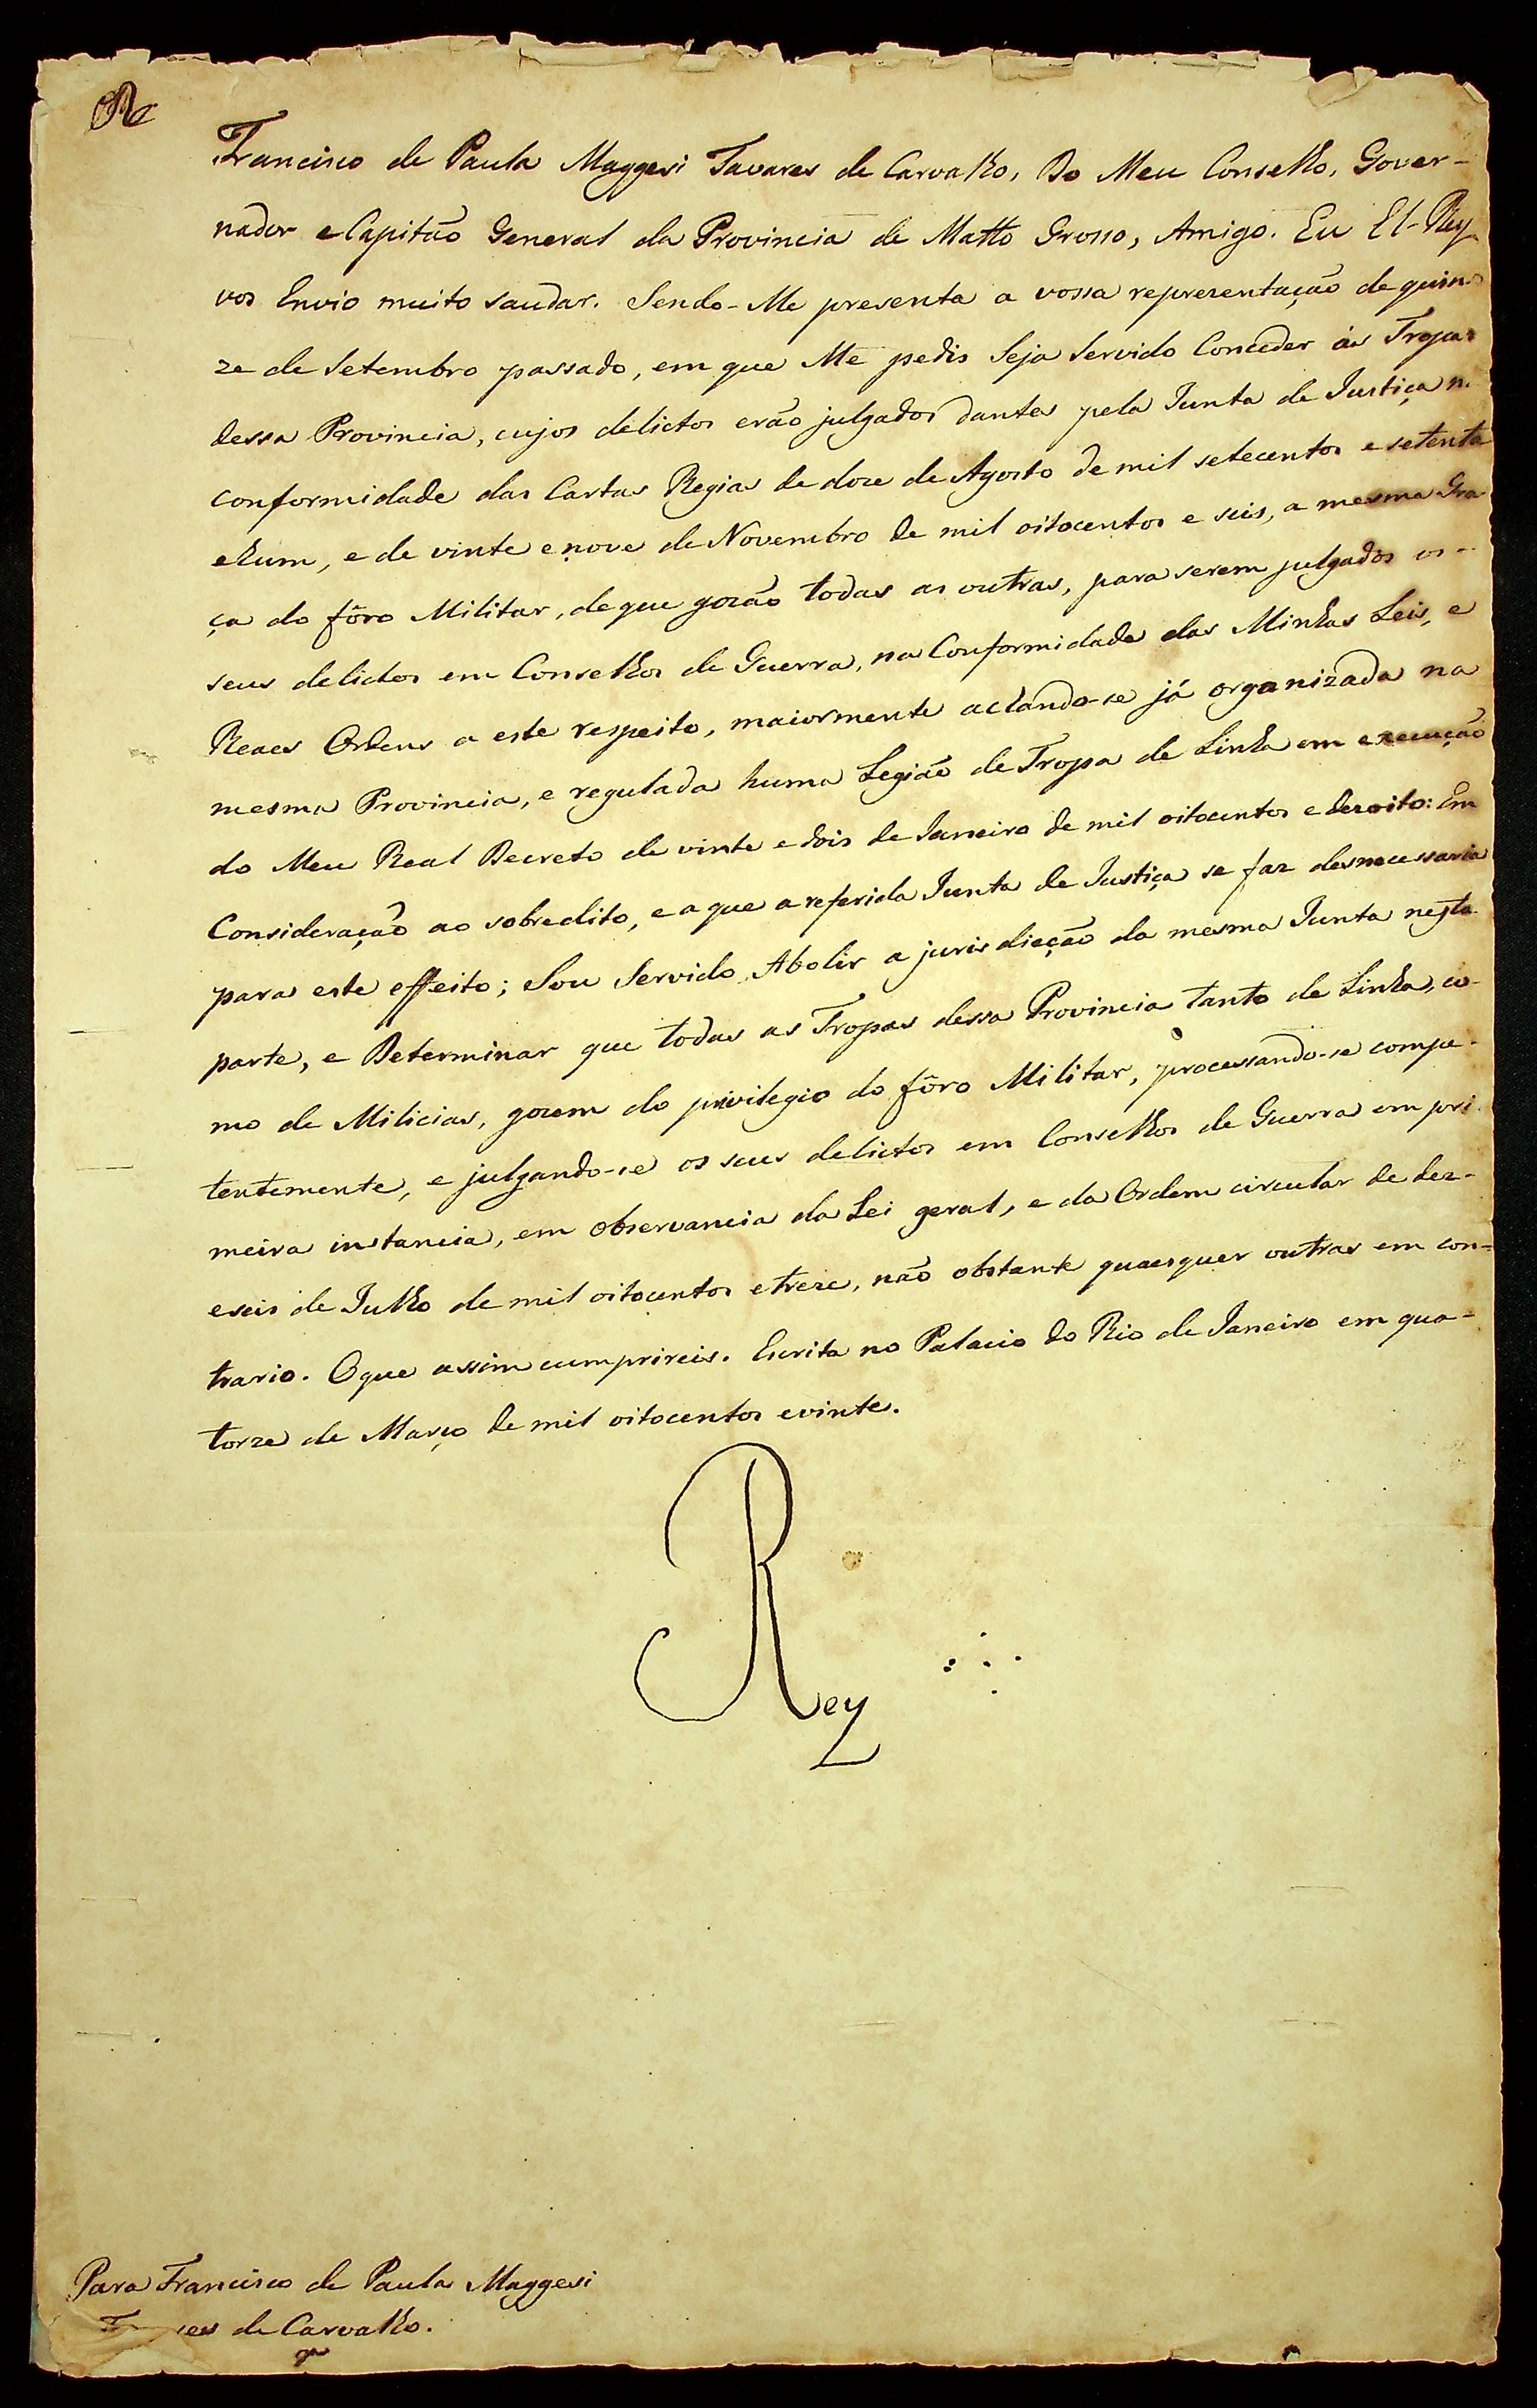 Francisco de Paula Maggesi Tavares de Carvalho, Do Meu Conselho, Gover-
nador e Capitão General da Provincia de Matto Grosso, Amigo. Eu El-Rey
vos Envio muito saudar. Sendo-Me presente a vossa reprezentação de quin-
ze de Setembro passado, em que Me pedis Seja Servido Conceder ás Tropas
dessa Provincia, cujos delictos erão julgados dantes pela Junta de Justiça n.
conformidade das Cartas Regias de doze de Agosto de mil setecentos e setenta
e hum, e de vinte e nove de Novembro de mil oitocentos e seis, a mesma Gra-
ça do fôro Militar, de que gozão todas as outras, para serem julgados os
seus delictos em Conselhos de Guerra, na Conformidade das Minhas Leis, e
Reaes Ordens a este respeito, maiormente achando-se já organizada na
mesma Provincia, e regulada huma Legião de Tropa de Linha em execução
do Meu Real Decreto de vinte e dois de Janeiro de mil oitocentos e dezoito: Em
Consideração ao sobredito, e a que a referida Junta de Justiça se faz desnecessaria
para este effeito; Sou Servido Abolir a jurisdicção da mesma Junta nesta
parte, e Determinar que todas as Tropas dessa Provincia tanto de Linha, co-
mo de Milicias, gozem do privilegio do fôro Militar, processando-se compe-
tentemente, e julgando-se os seus delictos em Conselhos de Guerra em pri-
meira instancia, em observancia da Lei geral, e da Ordem circular de dez-
eseis de Julho de mil oitocentos e treze, não obstante quaesquer outras em con-
trario. O que assim cumprireis. Escrita no Palacio do Rio de Janeiro em qua-
torze de Março de mil oitocentos e vinte.
Rey
Para Francisco de Paula Maggesi
de Carvalho.